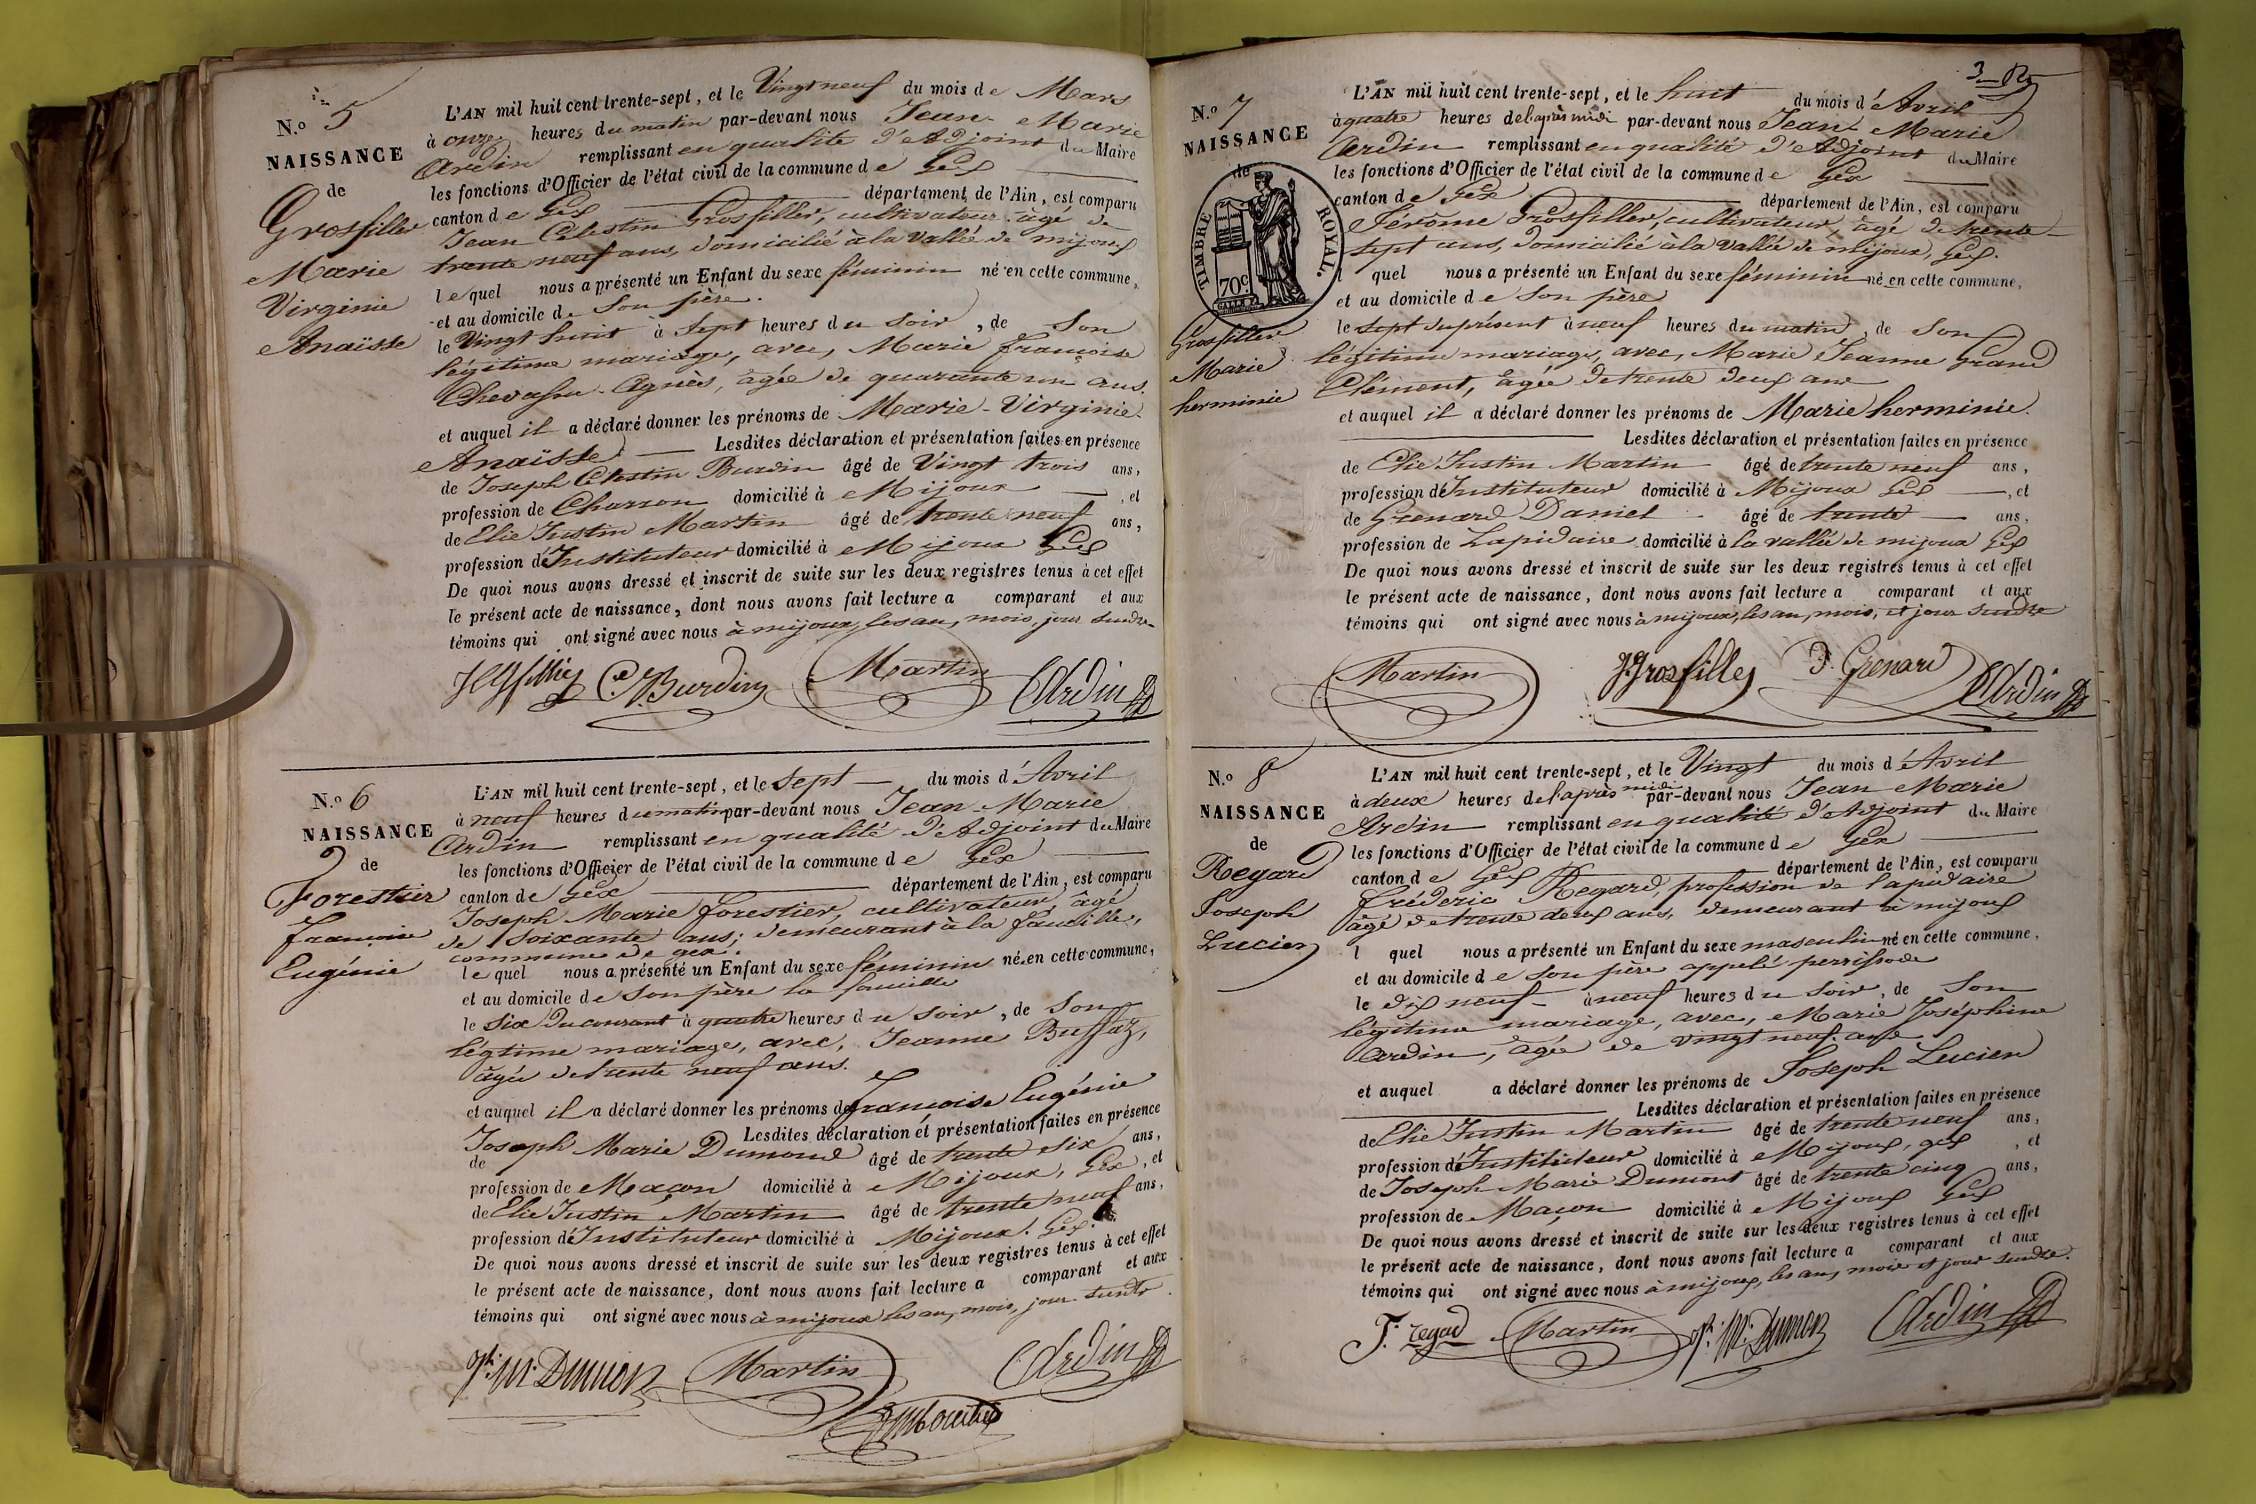 N.o 5
NAISSANCE
de
Grosfiller
Marie
Virginie
Anaïsse
L'AN mil huit cent trente-sept, et le Vingt neuf du mois de Mars
à onze heures du matin par-devant nous Jean Marie
Ardin remplissant en qualité d'Adjoint du Maire
les fonctions d'Officier de l'état civil de la commune de Gex
canton de Gex département de l'Ain, est comparu
Jean Célestin Grosfiller, cultivateur âgé de
trente neuf ans, domicilié à la vallée de mijoux
lequel nous a présenté un Enfant du sexe féminin né en cette commune,
et au domicile de Son père.
le Vingt huit à Sept heures du Soir, de Son
légitime mariage, avec, Marie françoise
Chevassu Agnès, âgée de quarante un ans.
et auquel il a déclaré donner les prénoms de Marie-Virginie
Anaïsse Lesdites déclaration et présentation faites en présence
de Joseph Célestin Burdin âgé de Vingt trois ans,
profession de Charron domicilié à Mijoux, et
de Elie Justin Martin âgé de trente neuf ans,
profession d'Instituteur domicilié à Mijoux Gex
De quoi nous avons dressé et inscrit de suite sur les deux registres tenus à cet effet
le présent acte de naissance, dont nous avons fait lecture a comparant et aux
témoins qui ont signé avec nous à mijoux, les an, mois, jour Susdts
C. Burdin Martin Ardin
N.o 6
NAISSANCE
de
Forestier
françoise
Eugénie
L'AN mil huit cent trente-sept, et le Sept du mois d'Avril
à neuf heures du matin par-devant nous Jean-Marie
Ardin remplissant en qualité d'Adjoint du Maire
les fonctions d'Officier de l'état civil de la commune de Gex
canton de Gex département de l'Ain, est comparu
Joseph Marie forestier, cultivateur, âgé
de Soixante ans; demeurant à la faucille,
commune de gex.
lequel nous a présenté un Enfant du sexe féminin né en cette commune,
et au domicile de Son père la faucille
le Six du courant à quatre heures du Soir, de Son
légtime mariage, avec, Jeanne Buffaz,
âgée de trente neuf ans.
et auquel il a déclaré donner les prénoms de françoise Eugénie
Lesdites déclaration et présentation faites en présence
de Joseph Marie Dumond âgé de trente Six ans,
profession de Maçon domicilié à Mijoux, Gex, et
de Elie Justin Martin âgé de trente neuf ans,
profession d'Instituteur domicilié à Mijoux. Gex.
De quoi nous avons dressé et inscrit de suite sur les deux registres tenus à cet effet
le présent acte de naissance, dont nous avons fait lecture a comparant et aux
témoins qui ont signé avec nous à mijoux les an, mois, jour Susdts
M. Dumon Martin Ardin
N.o 7
NAISSANCE
de
TIMBRE ROYAL.
70c
Grosfiller
Marie
herminie
L'AN mil huit cent trente-sept, et le huit du mois d'Avril
à quatre heures de l'après midi par-devant nous Jean Marie
Ardin remplissant en qualité d'Adjoint du Maire
les fonctions d'Officier de l'état civil de la commune de Gex
canton de Gex département de l'Ain, est comparu
Jérôme Grosfiller, cultivateur, âgé de trente
sept ans, domicilié à la vallée de mijoux, Gex.
l quel nous a présenté un Enfant du sexe féminin né en cette commune,
et au domicile de Son père
le Sept du présent à neuf heures du matin, de Son
légitime mariage, avec, Marie Jeanne Grand
Clément, âgée de trente deux ans
et auquel il a déclaré donner les prénoms de Marie herminie.
Lesdites déclaration et présentation faites en présence
de Elie Justin Martin âgé de trente neuf ans,
profession d'Instituteur domicilié à Mijoux Gex, et
de Grenard Daniel âgé de trente ans,
profession de Lapidaire domicilié à la vallée de mijoux Gex
De quoi nous avons dressé et inscrit de suite sur les deux registres tenus à cet effet
le présent acte de naissance, dont nous avons fait lecture a comparant et aux
témoins qui ont signé avec nous à mijoux, les an, mois, et jour Susdts
Martin J Grosfiller D. Grenard Ardin
N.o 8
NAISSANCE
de
Regard
Joseph
Lucien
L'AN mil huit cent trente-sept, et le Vingt du mois d'Avril
à deux heures de l'après midi par-devant nous Jean Marie
Ardin remplissant en qualité d'Adjoint du Maire
les fonctions d'Officier de l'état civil de la commune de Gex
canton de Gex département de l'Ain, est comparu
fréderic Regard, profession de lapidaire
âgé de trente deux ans, demeurant à mijoux
l quel nous a présenté un Enfant du sexe masculin né en cette commune,
et au domicile de Son père appelé
le dix neuf à neuf heures du Soir, de Son
légitime mariage, avec, Marie Joséphine
Ardin, âgée de vingt neuf ans.
et auquel a déclaré donner les prénoms de Joseph Lucien
Lesdites déclaration et présentation faites en présence
de Elie Justin Martin âgé de trente neuf ans,
profession d'Instituteur domicilié à Mijoux, gex, et
de Joseph Marie Dumont âgé de trente cinq ans,
profession de Maçon domicilié à Mijoux Gex
De quoi nous avons dressé et inscrit de suite sur les deux registres tenus à cet effet
le présent acte de naissance, dont nous avons fait lecture a comparant et aux
témoins qui ont signé avec nous à mijoux, les an, mois et jour Susdts.
F. regad Martin M. Dumon Ardin